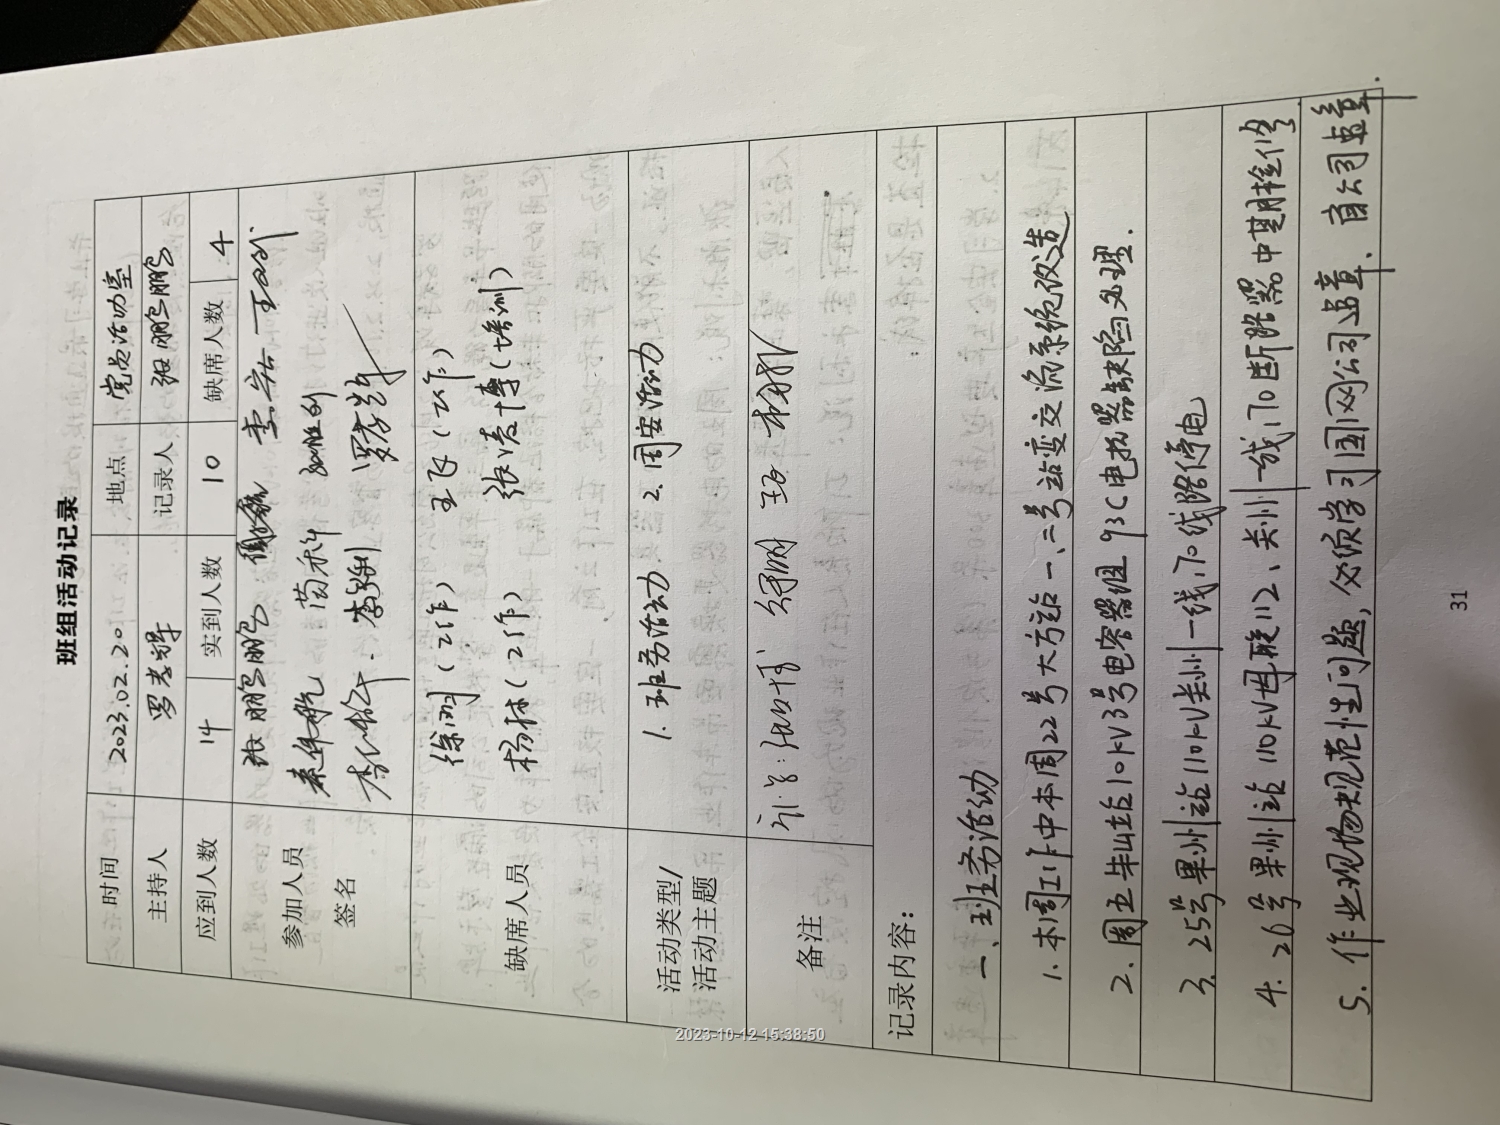 班组活动记录
时间 2023.02.20 地点 党员活动室
主持人 罗孝辉 记录人 张鹏鹏
应到人数 14 实到人数 10 缺席人数 4
参加人员签名 张鹏鹏
李
罗孝辉
缺席人员 徐刚(工作) 王飞(工作)
杨林(工作) 张志博(培训)
活动类型/活动主题 1. 班务活动 2. 周安活动
备注 补学:
记录内容:
一、班务活动
1. 本周工作中本周22号大方站一、二号站变交流系统改造
2. 周五毕山站10kV3号电容器组93C电抗器缺陷处理.
3. 25号果州站110kV关州一线170线路停电
4. 26号果州站110kV母联112、关州一线170断路器中期检修
5. 作业现场规范性问题,必须学习国网公司监章、省公司监章.
31
2023-10-12 15:38:50